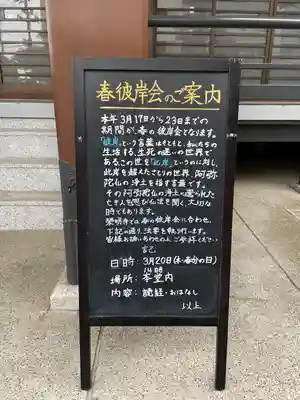 春彼岸会のご案内
本年3月17日から23日までの
期間が、春の彼岸会となります。
「彼岸」という言葉はもともと、私たちの
生活する、生死の迷いの世界で
あるこの世を「此岸」というのに対し、
此岸を超えたさとりの世界、阿弥
陀仏の浄土を指す言葉です。
その阿弥陀仏の浄土に還られた
亡き人を思い仏法を聞く、大切な
時でもあります。
当寺では春の彼岸会に合わせ、
下記の通り、法要を執り行います。
皆様お誘いあわせの上ご参拝ください。
記
日時:3月20日(水・春分の日)
14時
場所:本堂内
内容:読経・おはなし
以上